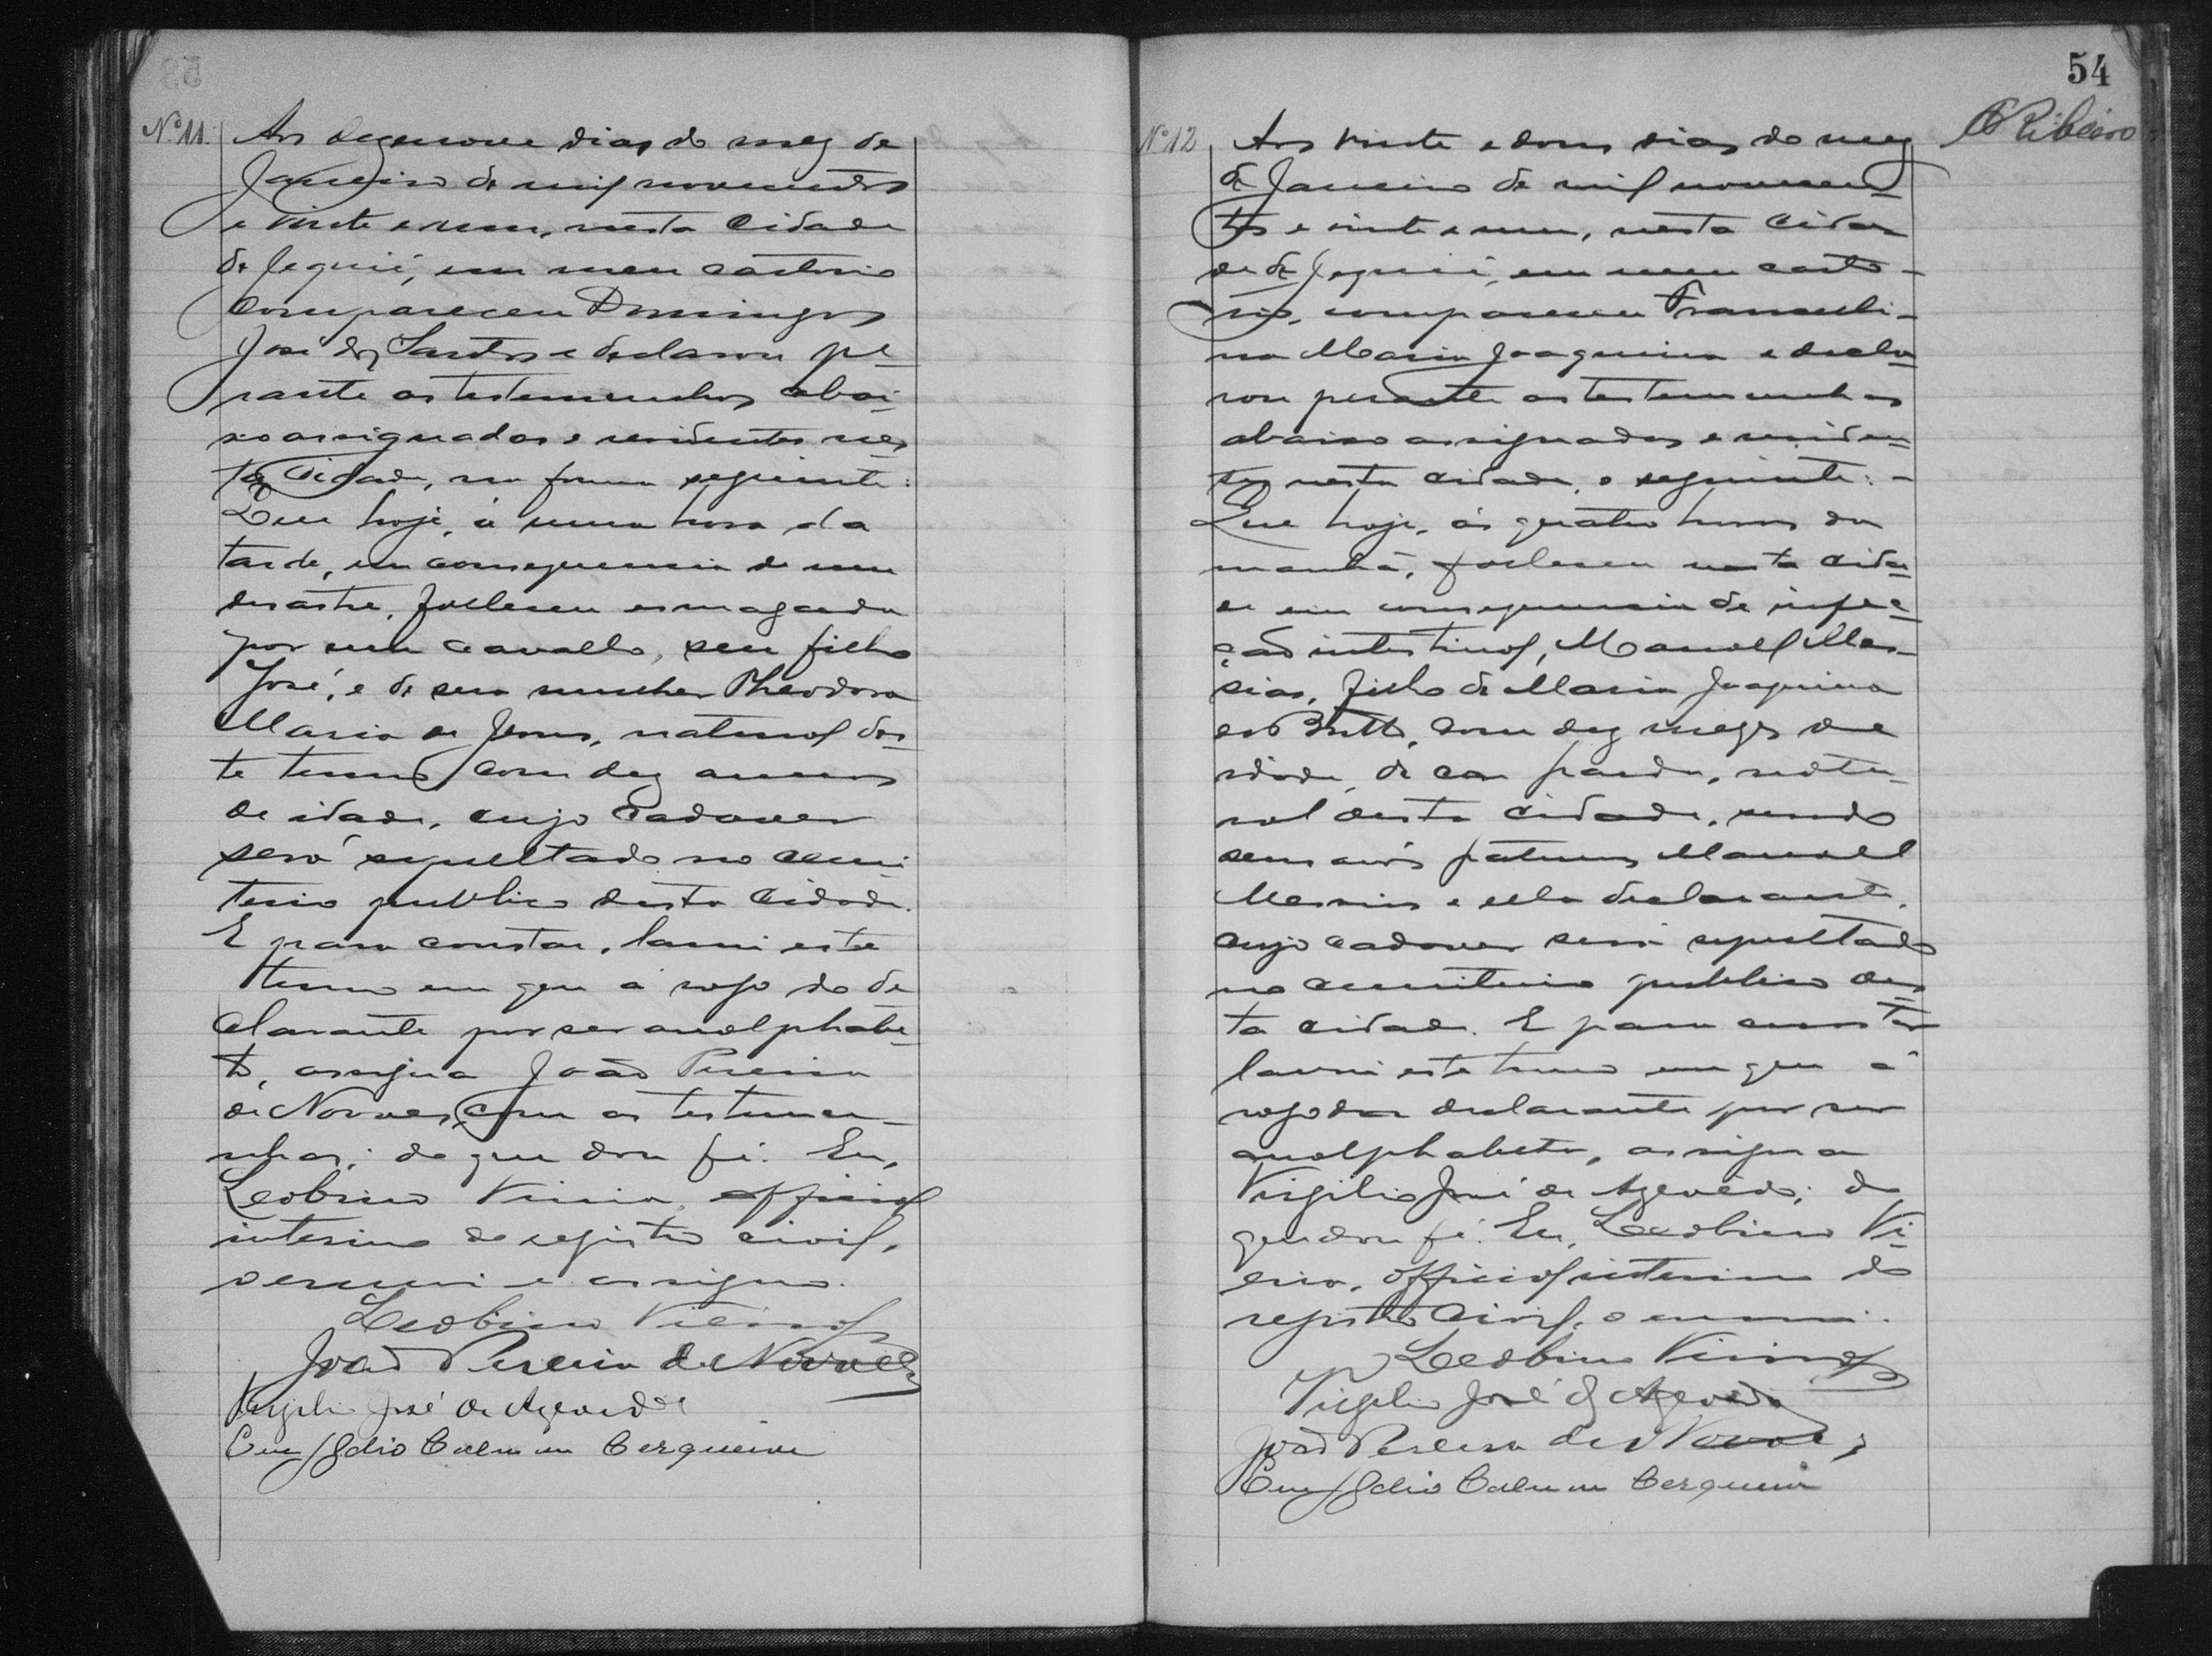 Nº 11.
Aos dezenove dias do mez de
Janeiro de mil novecentos
e vinte e um, nesta cidade
de Jequié, em meu cartorio
compareceu Domingos
José dos Santos e declarou pe-
rante as testemunhas abai-
xo assignadas e residentes nes-
ta cidade, na forma seguinte:
Que hoje, á uma hora da
tarde, em consequencia de um
desastre, falleceu esmagado
por um cavallo, seu filho
José, e de sua mulher Theodora
Maria de Jesus, natural des-
te termo, com dez annos
de idade, cujo cadaver
será sepultado no cemi-
terio publico desta cidade.
E para constar, lavrei este
termo em que a rogo do de-
clarante por ser analphabe-
to, assigna João Pereira
de Novaes, com as testemu-
nhas; do que dou fé. Eu,
Leobino Vieira, official
interino do registro civil,
o escrevi e assigno.
Leobino Vieira
João Pereira de Novaes
Virgilio José de Azevedo
Emygdio Calmon Cerqueira
54
Ribeiro
Nº 12
Aos vinte e dous dias do mez
de Janeiro de mil novecen-
tos e vinte e um, nesta cida-
de de Jequié, em meu carto-
rio, compareceu Franceli-
na Maria Joaquina e decla-
rou perante as testemunhas
abaixo assignadas e residen-
tes nesta cidade, o seguinte: -
Que hoje, ás quatro horas da
manhã, falleceu nesta cida-
de em consequencia de infec-
ção intestinal, Manoel Mes-
sias, filho de Maria Joaquina
de Britto, com dez mezes de
idade, de cor parda, natu-
ral desta cidade, sendo
seus avós paternos Manoel
Messias e ella declarante,
cujo cadaver será sepultado
no cemiterio publico des-
ta cidade. E para constar
lavrei este termo em que a
rogo da declarante por ser
analphabeta, assigna
Virgilio José de Azevêdo; do
que dou fé. Eu, Leobino Vi-
eira, official interino do
registro civil, o escrevi.
Leobino Vieira
Virgilio José de Azevedo
João Pereira de Novaes
Emygdio Calmon Cerqueira